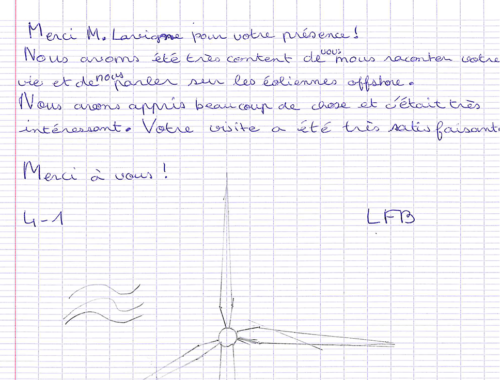 Merci M. Lavigne pour votre présence !
Nous avons été très content de vous nous raconter votre
vie et de nous parler sur les éoliennes offshore.
Nous avons appris beaucoup de chose et c'était très
intéressant. Votre visite a été très satisfaisant
Merci à vous !
4-1 LFB